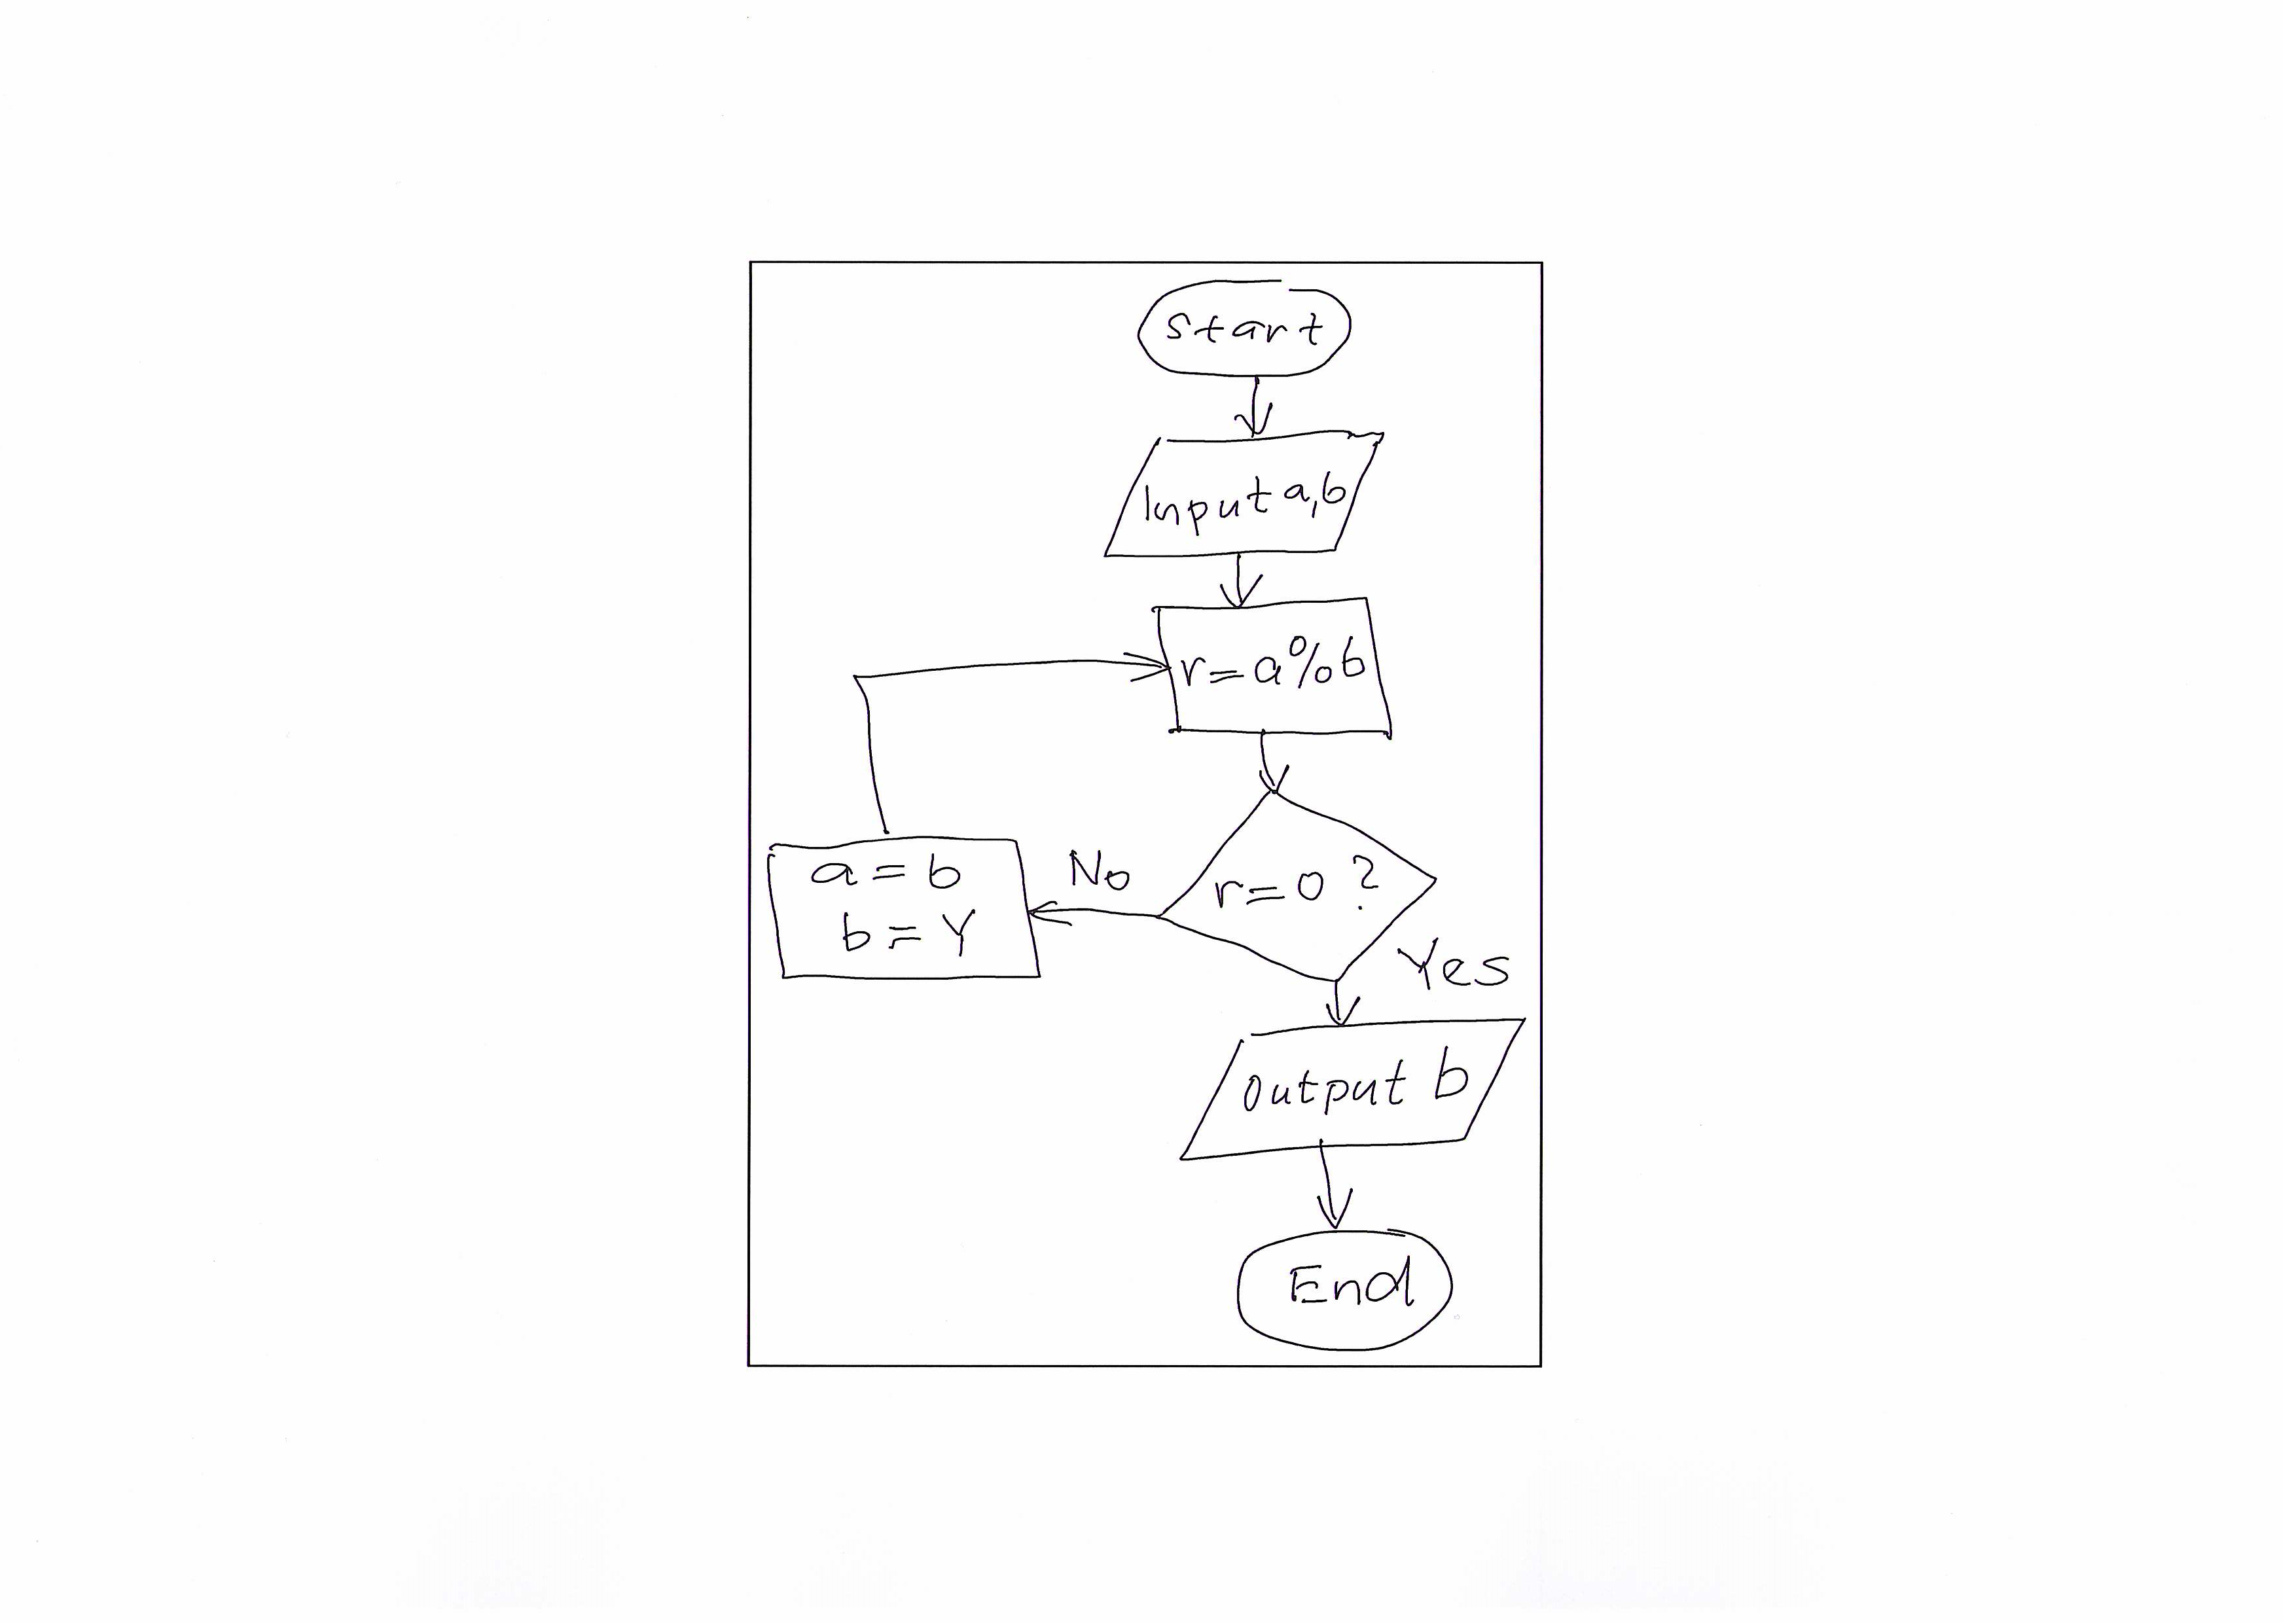 Start
Input a,b
r=a%b
r=0?
No
a=b
b=Y
Yes
Output b
End